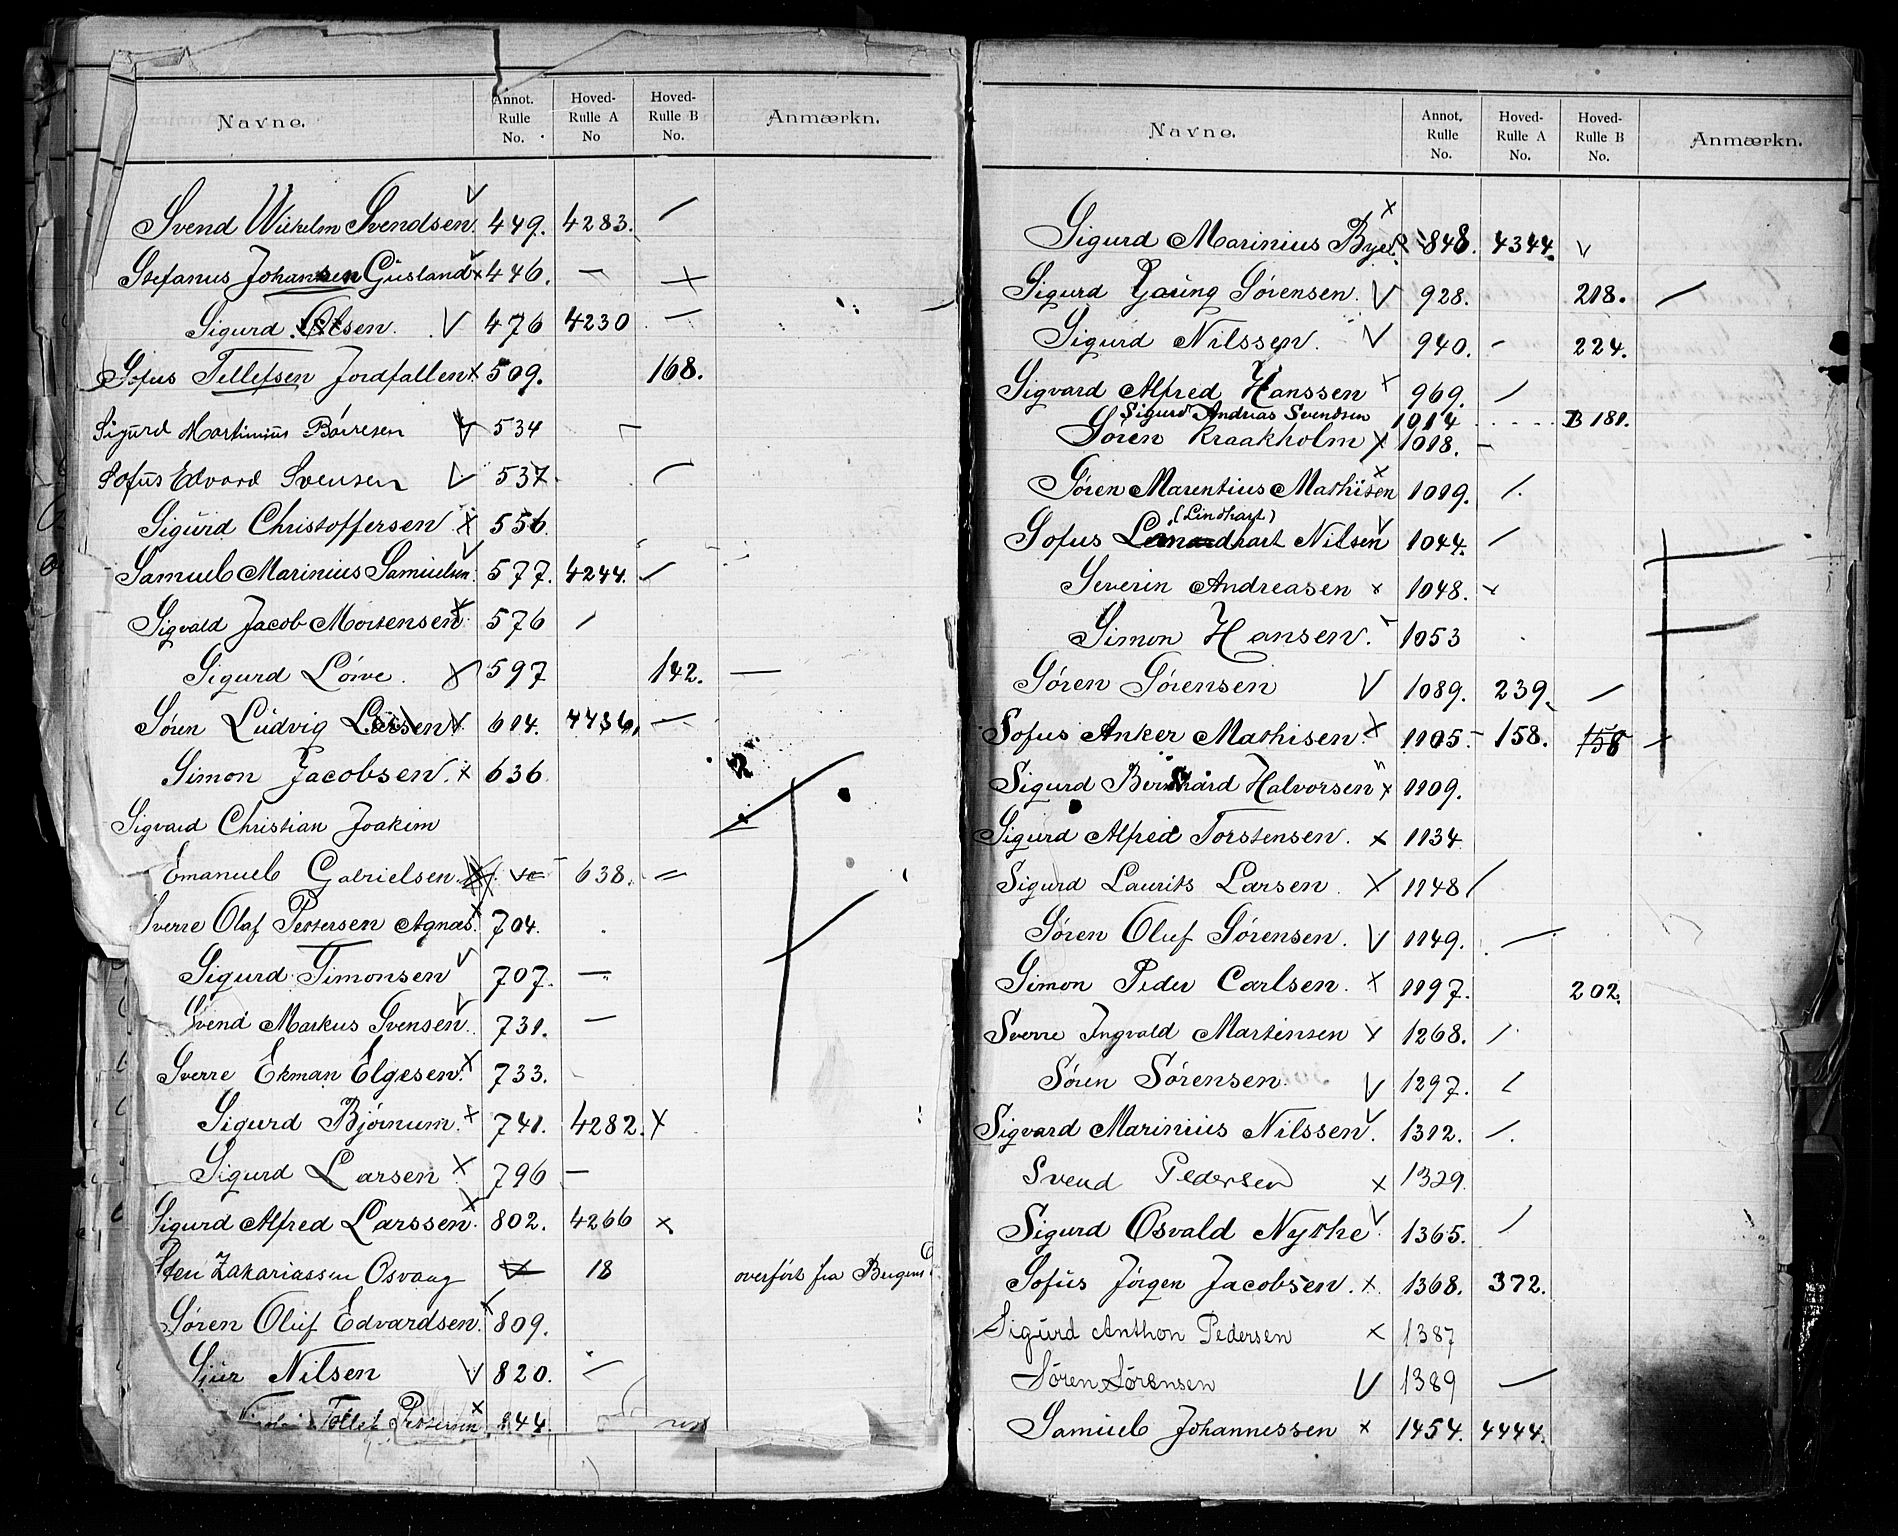 Navne. Annot. Rulle No. Hoved-Rulle A No Hoved-Rulle B No. Anmærkn.
Svend Wilhelm Svendsen V 449. 4283. —
Stefanus Johansen Gusland x 446. — x
Sigurd Olsen. V 476 4230 —
Sofus Tellefsen Jordfallen x 509. 168.
Sigurd Martinius Børresen V 534 —
Sofus Edvard Svensen V 537. —
Sigurd Christoffersen x 556.
Samuel Marinius Samuelsen V 577. 4244. —
Sigvald Jacob Mortensen x 576 —
Sigurd Löwe. x 597 142. —
Søren Ludvig Larsen x 614. 4436. —
Simon Jacobsen. x 636.
Sigvard Christian Joakim
Emanuel Gabrielsen. 638. —
Sverre Olaf Pettersen Agnæs. x 704.
Sigurd Timonsen V 707. —
Svend Markus Svensen V 731. —
Sverre Ekman Elgesen. x 733.
Sigurd Bjørnum. x 741. 4282. x
Sigurd Larsen x 796 —
Sigurd Alfred Larssen. x 802. 4266 x
Sten Zakariassen Osvaag 18 overført fra Bergens
Søren Oluf Edvardsen. x 809.
Sjur Nilsen V 820. —
Tollef Pettersen x 844.
Navne. Annot. Rulle No. Hoved-Rulle A No. Hoved-Rulle B No. Anmærkn.
Sigurd Marinius x 848. 4344. v
Sigurd Young Sørensen. V 928. 218. —
Sigurd Nilssen. V 940. — 224.
Sigvard Alfred Hanssen x 969. —
Sigurd Andreas Svendsen 1014 ..... B 181.
Søren Kraakholm x 1018. —
Søren Marentius Mathisen x 1019. —
(Lindhart)
Sofus Lenardhart Nilsen V 1044. —
Severin Andreasen x 1048. x
Simon Hansen. 1053
Søren Sørensen V 1089. 239. —
Sofus Anker Mathisen. x 1105. — 158. 158 —
Sigurd Bernhard Halvorsen x 1109.
Sigurd Alfred Torstensen. x 1134
Sigurd Laurits Larsen. x 1148 /
Søren Oluf Sørensen. V 1149. —
Simon Peder Carlsen. x 1197. 202.
Sverre Ingvald Martinsen x 1268. /
Søren Sørensen. V 1297. /
Sigvard Marinius Nilssen V. 1312. /.
Svend Pedersen x 1329.
Sigurd Osvald Nythe V. 1365. /
Sofus Jørgen Jacobsen. x. 1368. 372.
Sigurd Anthon Pedersen x 1387
Søren Sørensen V 1389 —
Samuel Johannessen x 1454. 4444.